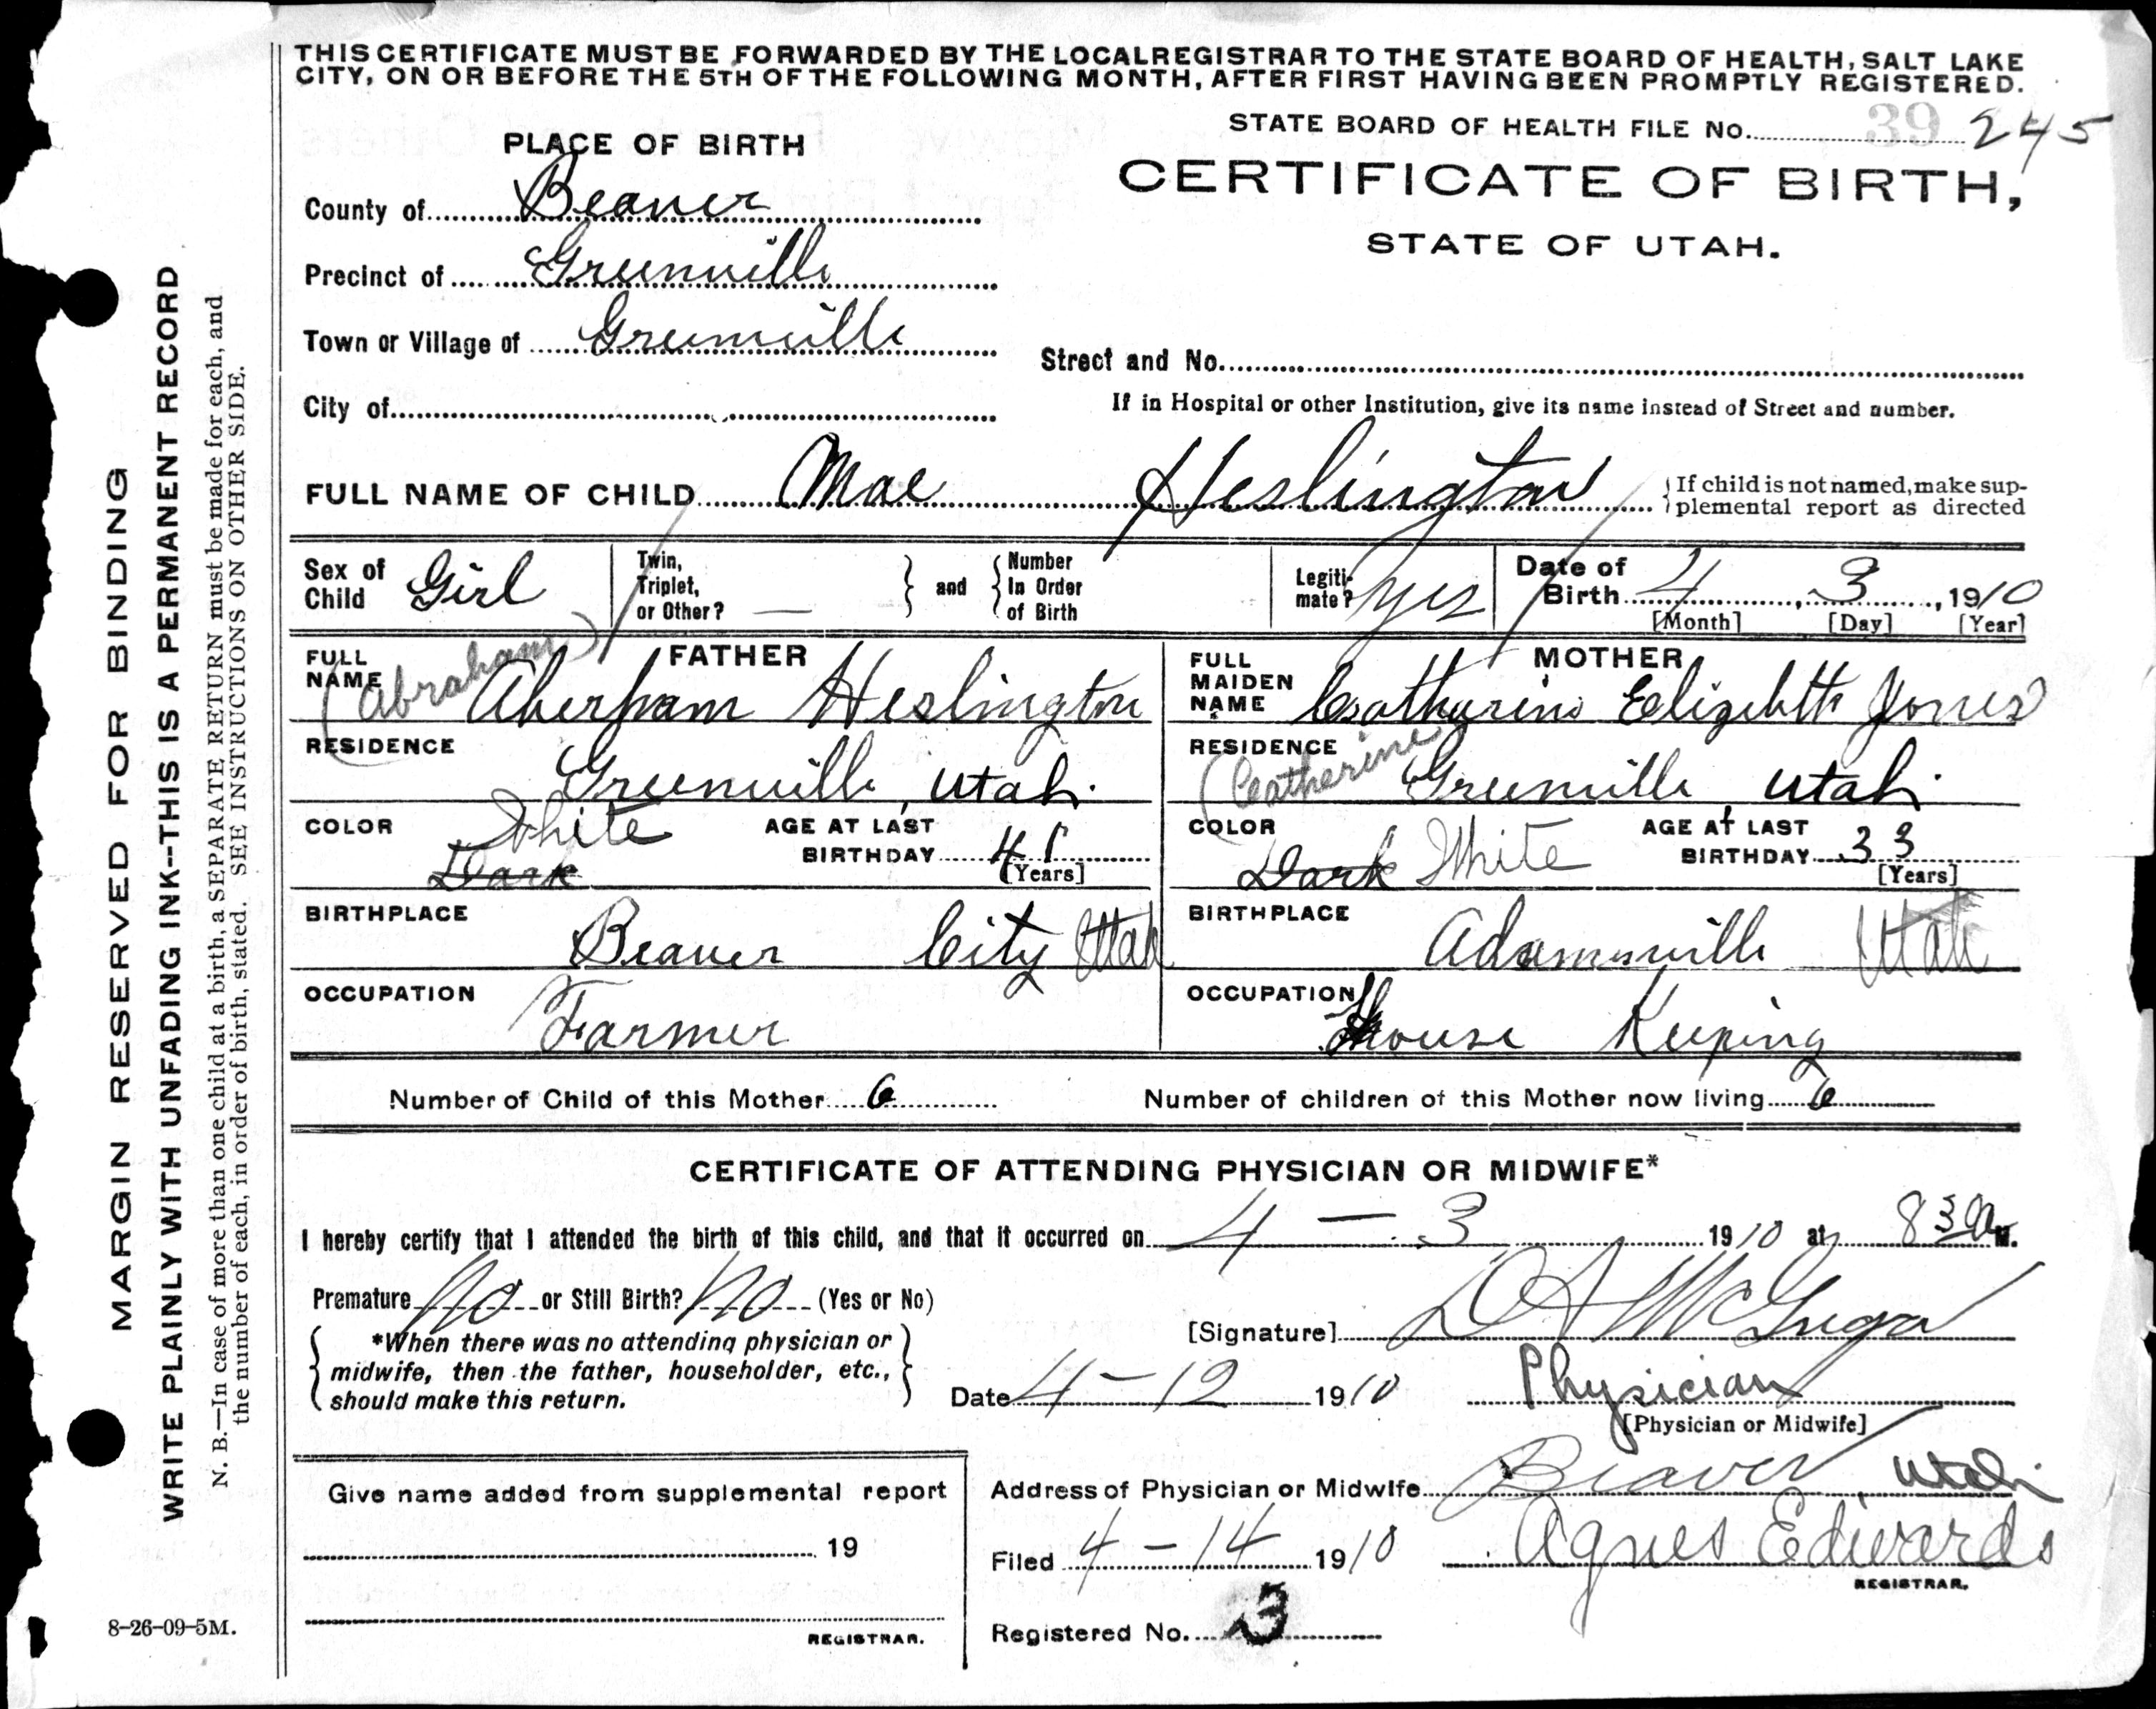 THIS CERTIFICATE MUST BE FORWARDED BY THE LOCAL REGISTRAR TO THE STATE BOARD OF HEALTH, SALT LAKE
CITY, ON OR BEFORE THE 5TH OF THE FOLLOWING MONTH, AFTER FIRST HAVING BEEN PROMPTLY REGISTERED.
STATE BOARD OF HEALTH FILE No. 39 245
PLACE OF BIRTH
CERTIFICATE OF BIRTH,
STATE OF UTAH.
County of Beaver
Precinct of Greenville
Town or Village of Greenville
Street and No.
City of
If in Hospital or other Institution, give its name instead of Street and number.
FULL NAME OF CHILD Mae Heslington
If child is not named, make sup-
plemental report as directed
Sex of Child Girl
Twin, Triplet, or Other? —
and
Number In Order of Birth
Legiti-mate? yes
Date of Birth 4, 3, 1910
[Month] [Day] [Year]
FATHER
FULL NAME (Abraham) Aberham Heslington
RESIDENCE Greenville, Utah.
COLOR Dark White
AGE AT LAST BIRTHDAY 41 [Years]
BIRTHPLACE Beaver City Utah
OCCUPATION Farmer
MOTHER
FULL MAIDEN NAME Catharine Elizebeth Jones
(Catherine
RESIDENCE Greenville, Utah.
COLOR Dark White
AGE AT LAST BIRTHDAY 33 [Years]
BIRTHPLACE Adamsville Utah
OCCUPATION House Keeping
Number of Child of this Mother 6
Number of children of this Mother now living 6
CERTIFICATE OF ATTENDING PHYSICIAN OR MIDWIFE*
I hereby certify that I attended the birth of this child, and that it occurred on 4 — 3 1910 at 8 30 a M.
Premature No or Still Birth? No (Yes or No)
*When there was no attending physician or
midwife, then the father, householder, etc.,
should make this return.
[Signature] D A McGregor
Date 4 — 12 1910
Physician
[Physician or Midwife]
Give name added from supplemental report
19
REGISTRAR.
Address of Physician or Midwife Beaver, Utah
Filed 4 — 14 1910
Agnes Edwards
REGISTRAR.
Registered No. 3
8-26-09-5M.
MARGIN RESERVED FOR BINDING
WRITE PLAINLY WITH UNFADING INK--THIS IS A PERMANENT RECORD
N. B.—In case of more than one child at a birth, a SEPARATE RETURN must be made for each, and
the number of each, in order of birth, stated. SEE INSTRUCTIONS ON OTHER SIDE.